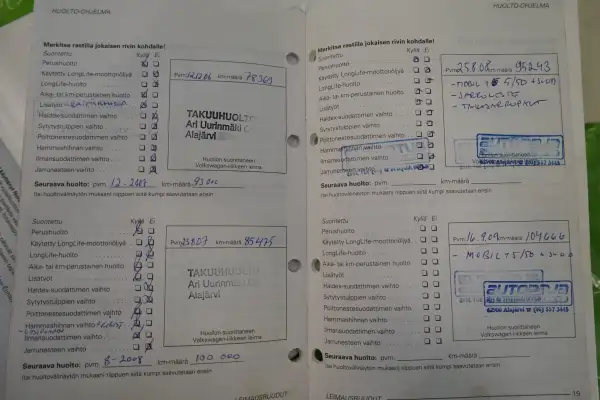 HUOLTO-OHJELMA
Merkitse rastilla jokaisen rivin kohdalle!
Suoritettu Kyllä Ei
Perushuolto
Käytetty LongLife-moottoriöljyä
LongLife-huolto
Aika- tai km-perustainen huolto
Lisätyöt
Haldex-suodattimen vaihto
Sytytystulppien vaihto
Polttoainesuodattimen vaihto
Hammashihnan vaihto
Ilmansuodattimen vaihto
Jarrunesteen vaihto
Pvm km-määrä 78363
TAKUUHUOLTO
Ari Uurinmäki
Alajärvi
Huollon suorittaneen
Volkswagen-liikkeen leima
Seuraava huolto: pvm. 12-2008 km-määrä 93 000
(tai huoltovälinäytön mukaan) riippuen siitä kumpi saavutetaan ensin
Suoritettu Kyllä Ei
Perushuolto
Käytetty LongLife-moottoriöljyä
LongLife-huolto
Aika- tai km-perustainen huolto
Lisätyöt
Haldex-suodattimen vaihto
Sytytystulppien vaihto
Polttoainesuodattimen vaihto
Hammashihnan vaihto
Ilmansuodattimen vaihto
Jarrunesteen vaihto
Pvm km-määrä 85475
TAKUUHUOLTO
Ari Uurinmäki
Alajärvi
Huollon suorittaneen
Volkswagen-liikkeen leima
Seuraava huolto: pvm. 8-2008 km-määrä 100 000
(tai huoltovälinäytön mukaan) riippuen siitä kumpi saavutetaan ensin
LEIMAUSRUUDUT
HUOLTO-OHJELMA
Merkitse rastilla jokaisen rivin kohdalle!
Suoritettu Kyllä Ei
Perushuolto
Käytetty LongLife-moottoriöljyä
LongLife-huolto
Aika- tai km-perustainen huolto
Lisätyöt
Haldex-suodattimen vaihto
Sytytystulppien vaihto
Polttoainesuodattimen vaihto
Hammashihnan vaihto
Ilmansuodattimen vaihto
Jarrunesteen vaihto
Pvm 25.8.08 km-määrä 95243
- JARRUNESTE
Volkswagen-liikkeen leima
Seuraava huolto: pvm. km-määrä
(tai huoltovälinäytön mukaan) riippuen siitä kumpi saavutetaan ensin
Suoritettu Kyllä Ei
Perushuolto
Käytetty LongLife-moottoriöljyä
LongLife-huolto
Aika- tai km-perustainen huolto
Lisätyöt
Haldex-suodattimen vaihto
Sytytystulppien vaihto
Polttoainesuodattimen vaihto
Hammashihnan vaihto
Ilmansuodattimen vaihto
Jarrunesteen vaihto
Pvm 16.9.09 km-määrä 104666
- MOBIL 1 5/50
62900 Alajärvi
Huollon suorittaneen
Volkswagen-liikkeen leima
Seuraava huolto: pvm. km-määrä
(tai huoltovälinäytön mukaan) riippuen siitä kumpi saavutetaan ensin
LEIMAUSRUUDUT 19